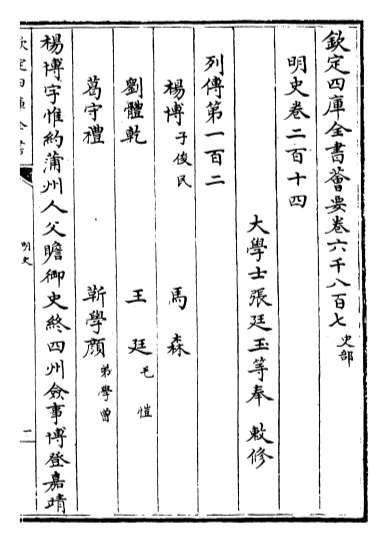 欽定四庫全書薈要卷六千八百七 史部
明史卷二百十四
大學士張廷玉等奉 敕修
列傳第一百二
楊博子俊民 馬森
劉體乾 王廷毛愷
葛守禮 靳學顏弟學曾
楊博字惟約蒲州人父瞻御史終四川僉事博登嘉靖
欽定四庫全書
明史
二